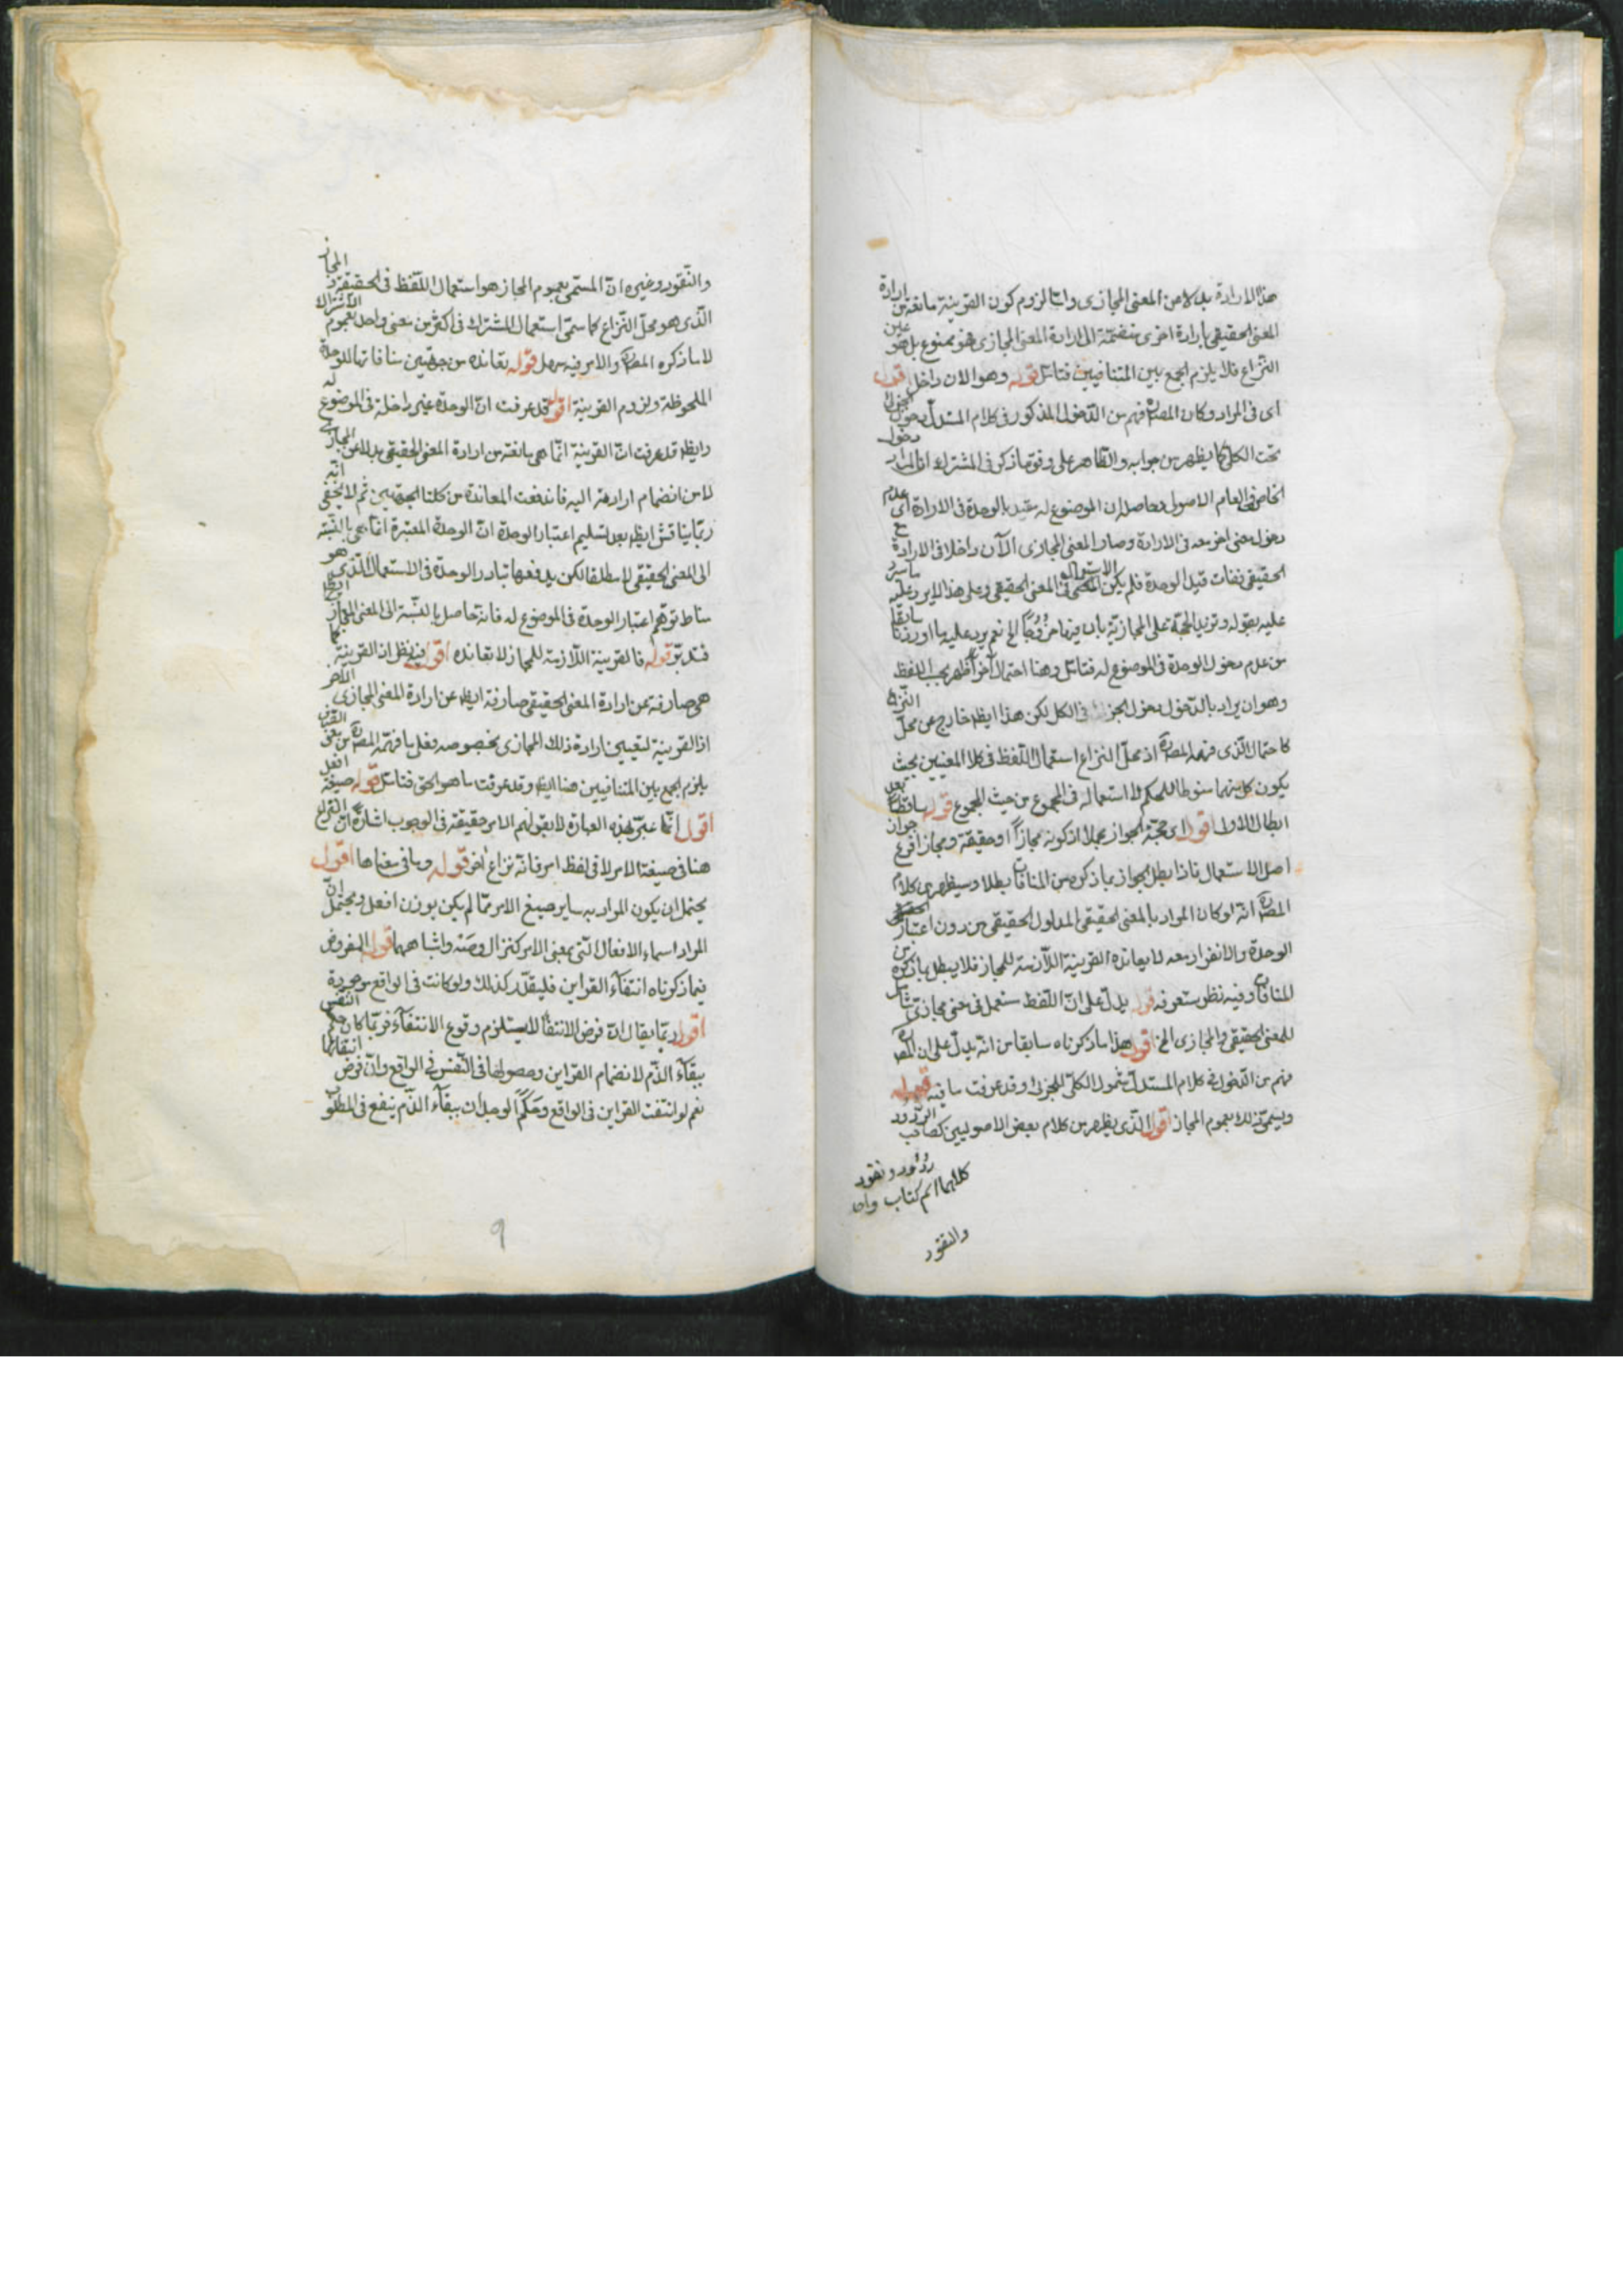 هذا الارادة بدلا من المعنى المجازى وامّا لزوم كون القرينة مانعة من ارادة
المعنى الحقيقى بارادة اخرى منضمّة الى ارادة المعنى المجازى فهو ممنوع بل هو عين
النزاع فلا يلزم الجمع بين المتنافيين فتامّل قوله وهو الان داخل قول
اى فى المراد وكان المصؒ فهم من الدّخول المذكور فى كلام المستدلّ دخول الجزئى
تحت الكلّى كما يظهر من جوابه والظاهر على وفق ما ذكر فى المشترك انّ المراد دخول
الخاص فى العام الاصول وحاصله ان الموضوع له مقيد بالوحدة فى الارادة اى عدم
دخول معنى اخر معه فى الارادة وصار المعنى المجازى الآن داخلا فى الارادة مع
الحقيقى ففات قيد الوحدة فلم يكن الاستعمال فى المعنى الحقيقى وعلى هذا لا يرد عليه ما سيرد
عليه بقوله وتزيد الحجّة على المجازيّة بان فيها خروجًا الخ نعم يرد عليه ما اوردنا سابقًا
من عدم دخول الوحدة فى الموضوع له فتامّل وهنا احتمال آخر أظهر بحسب اللفظ
وهو ان يراد بالدّخول دخول الجزء فى الكل لكن هذا ايظ خارج عن محلّ النّزاع
كاحتمال الّذى فهمه المصؒ اذ محلّ النزاع استعمال اللّفظ فى كلا المعنيين بحيث
يكون كل منهما منوطا للحكم لا استعماله فى المجموع من حيث المجموع قوله ساقط بعد
ابطال الاول اقول اى حجّة الجواز مجملا اذ كونه مجازاً او حقيقة ومجازا فرع جواز
اصل الاستعمال فاذا بطل الجواز بما ذكره من المنافاة بطلا وسيظهر من كلام
المصؒ انّه لو كان المراد بالمعنى الحقيقى المدلول الحقيقى من دون اعتبار
الوحدة والانفراد معه لا يعانده القرينة اللّازمة للمجاز فلا يبطل بما ذكره من
المنافاة وفيه نظر ستعرفه قوله يدلّ على انّ اللّفظ مستعمل فى معنى مجازى شامل
للمعنى الحقيقى والمجازى الخ اقول هذا ما ذكرناه سابقا من انّه يدلّ على ان المصؒ
فهم من الدّخول فى كلام المستدلّ شمول الكلّى للجزئى وقد عرفت ما فيه قوله
ويسمّى ذلك بعموم المجاز اقول الّذى يظهر من كلام بعض الاصوليين كصاحب الردود
ردود ونقود
كلاهما اسم كتاب
والنقود
والنّقود وغيره انّ المسمّى بعموم المجاز هو استعمال اللّفظ فى الحقيقة والمجاز
الّذى هو محلّ النّزاع كما سمّى استعمال المشترك فى اكثر من معنى واحد بعموم الاشتراك
لا ما ذكره المصؒ والامر فيه سهل قوله تعانده من جهتين منافاتها للوحدة
الملحوظة ولزوم القرينة اقول قد عرفت انّ الوحدة غير داخلة فى الموضوع له
وايظ قد عرفت انّ القرينة انّما هى مانعة من ارادة المعنى الحقيقى بدلا عن المجازى
لا من انضمام ارادته اليه فاندفعت المعاندة من كلتا الجهتين ثم لا يخفى انّه
ربّما يناقش ايظ بعد تسليم اعتبار الوحدة انّ الوحدة المعتبرة انّما هى بالنّسبة
الى المعنى الحقيقى لا مطلقا لكن يدفعها تبادر الوحدة فى الاستعمال الّذى هو
مناط توهّم اعتبار الوحدة فى الموضوع له فانّه حاصل بالنّسبة الى المعنى المجازى ايظ
فتدبّر قوله فالقرينة اللّازمة للمجاز لا تعانده اقول فيه نظر لان القرينة كما
هى صارفة عن ارادة المعنى الحقيقى صارفة ايظ عن ارادة المعنى المجازى الآخر
اذ القرينة لتعيين ارادة ذلك المجازى بخصوصه فعلى ما فهمه المصؒ من معنى القرينة
يلزم الجمع بين المتنافيين هنا ايظ وقد عرفت ما هو الحق فتامّل قوله صيغة افعل
اقول انّما عبّر بهذه العبارة لا بقولهم الامر حقيقة فى الوجوب اشارةً انّ النّزاع
هنا فى صيغة الامر لا فى لفظ امر فانّه نزاع اخر قوله وما فى معناها اقول
يحتمل ان يكون المراد به ساير صيغ الامر ممّا لم يكن بوزن افعل ويحتمل انّ
المراد اسماء الافعال الّتى بمعنى الامر كنزال وصَه واشباههما قوله المفروض
فيما ذكرناه انتفآء القراين فليقدّر كذلك ولو كانت فى الواقع موجودة
اقول ربّما يقال انّ فرض الانتفآء لا يستلزم وقوع الانتفآء فربّما كان حكم النّفس
ببقآء الذّم لانضمام القراين وحصولها فى النّفس فى الواقع وان فرض انتفائها
نعم لو انتفت القراين فى الواقع وحكم الوجدان ببقآء الذّم ينفع فى المطلوب
9